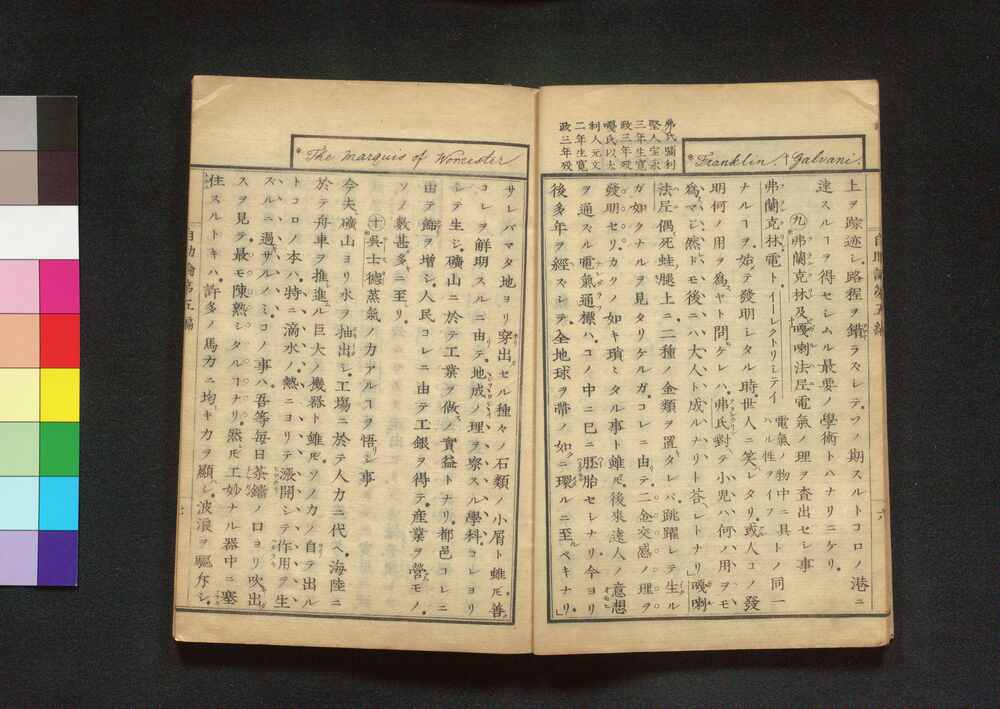 Franklin. & Galvani.
弗氏彌利
堅人宝永
三年生寛
政三年歿
嘎氏以太
利人元文
二年生寛
政三年歿
上ヲ踪迹シ路程ヲ錯ラスシテソノ期スルトコロノ港ニ
達スルヿヲ得セシムル最要ノ學術トハナリニケリ
九 弗蘭克林及嘎喇法尼電氣ノ理ヲ査出セシ事
弗蘭克林電トイーレクトリシテイ電氣物中ニ具ハル性ヲイフトノ同一
ナルヿヲ始テ發明シタル時世人ニ笑レタリ或人コノ發
明何ノ用ヲ為ヤト問ケレハ弗氏對テ小児ハ何ノ用ヲモ
為マシ然𪜈後ニハ大人ト成ルナリト荅シトナリ」嘎喇
法尼偶死蛙腿上ニ二種ノ金類ヲ置タレバ跳躍シテ生ル
ガ如クナルヲ見タリケルガコレニ由テ二金交感ノ理ヲ
發明セリカクノ如キ瑣々タル事ト雖𪜈後來達人ノ意想
ヲ通スル電氣通標ハコノ中ニ已ニ胚胎セシナリ今ヨリ
後多年ヲ經スシテ全地球ヲ帯ノ如クニ環ルニ至ベキナリ」
The Marquis of Worcester
サレバマタ地ヨリ穿出セル種々ノ石類ノ小屑ト雖𪜈善
コレヲ解明スルニ由テ地成ノ理ヲ察スル學科コレヨリ
シテ生シ礦山ニ於テ工業ヲ做ノ實益トナリ都邑コレニ
由テ飾ヲ増シ人民コレニ由テ工銀ヲ得テ産業ヲ營モノ
ソノ數甚多ニ至リ
十 呉士德蒸氣ノ力アルヿヲ悟リシ事
今夫礦山ヨリ水ヲ抽出シ工場ニ於テ人力ニ代ヘ海陸ニ
於テ舟車ヲ推進ル巨大ノ機器ト雖𪜈ソノ力ノ自テ出ル
トコロノ本ハ特ニ滴水ノ熱ニヨリテ漲開シテ作用ヲ生
スルニ過ザルノミコノ事ハ吾等毎日茶鑵ノ口ヨリ吹出
スヲ見テ最モ陳熟シタルヿナリ然𪜈工妙ナル器中ニ塞
住スルトキハ許多ノ馬力ニ均キ力ヲ顯シ波浪ヲ驅斥シ
自助論第五編